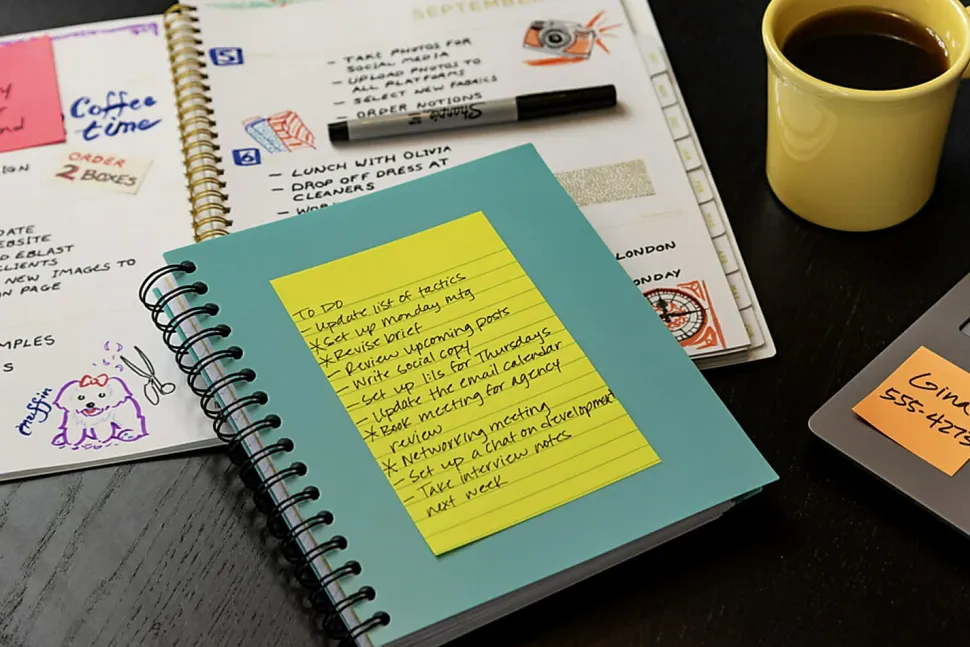 SEPTEMBER
5
- TAKE PHOTOS FOR
SOCIAL MEDIA
- UPLOAD PHOTOS TO
ALL PLATFORMS
- SELECT NEW FABRICS
- ORDER NOTIONS
Sharpie
6
- LUNCH WITH OLIVIA
- DROP OFF DRESS AT
CLEANERS
LONDON
Coffee
time
ORDER
2 BOXES
EBLAST
NEW IMAGES TO
PAGE
muffin
TO DO
- Update list of tactics
* Set up monday mtg
* Revise brief
- Review upcoming posts
- Write social copy
- Set up 1:1s for Thursdays
- Update the email calendar
* Book meeting for agency
review
* Networking meeting
- Set up a chat on development
- Take interview notes
next week
Gina
555-427